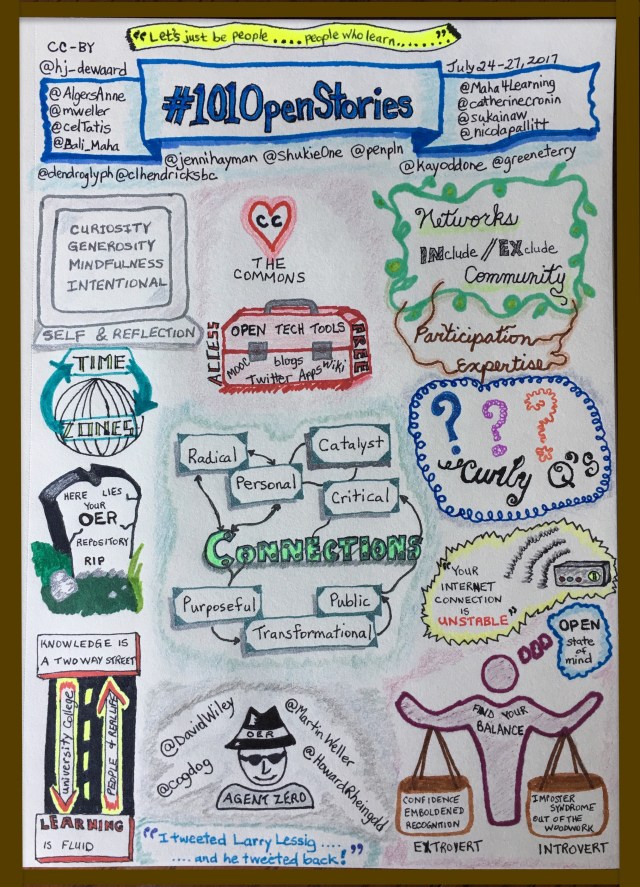 "Let's just be people .... people who learn......"
CC-BY
@hj-dewaard
July 24-27, 2017
@AlgersAnne
@mweller
@celTatis
@Bali_Maha
#101OpenStories
@Maha4Learning
@catherinecronin
@sukainaw
@nicolapallitt
@jennihayman @ShukieOne @penpln
@kayoddone @greeneterry
@dendroglyph @clhendricksbc
CURIOSITY
GENEROSITY
MINDFULNESS
INTENTIONAL
SELF & REFLECTION
CC
THE
COMMONS
Networks
INclude//EXclude
Community
Participation
Expertise
ACCESS
OPEN TECH TOOLS
FREE
MOOC blogs Wiki
Twitter Apps
TIME
ZONES
? ? ?
"Curly Q's
Radical
Catalyst
Personal
Critical
CONNECTIONS
Purposeful
Public
Transformational
HERE LIES
YOUR
OER
REPOSITORY
RIP
"YOUR
INTERNET
CONNECTION
IS
UNSTABLE"
OPEN
state
of
mind
KNOWLEDGE IS
A TWO WAY STREET
University College
PEOPLE & REAL LIFE
LEARNING
IS FLUID
@DavidWiley
@cogdog
@Martin Weller
@HowardRheingold
OER
AGENT ZERO
"I tweeted Larry Lessig ....
.... and he tweeted back!"
FIND YOUR
BALANCE
CONFIDENCE
EMBOLDENED
RECOGNITION
EXTROVERT
IMPOSTER
SYNDROME
OUT OF THE
WOODWORK
INTROVERT